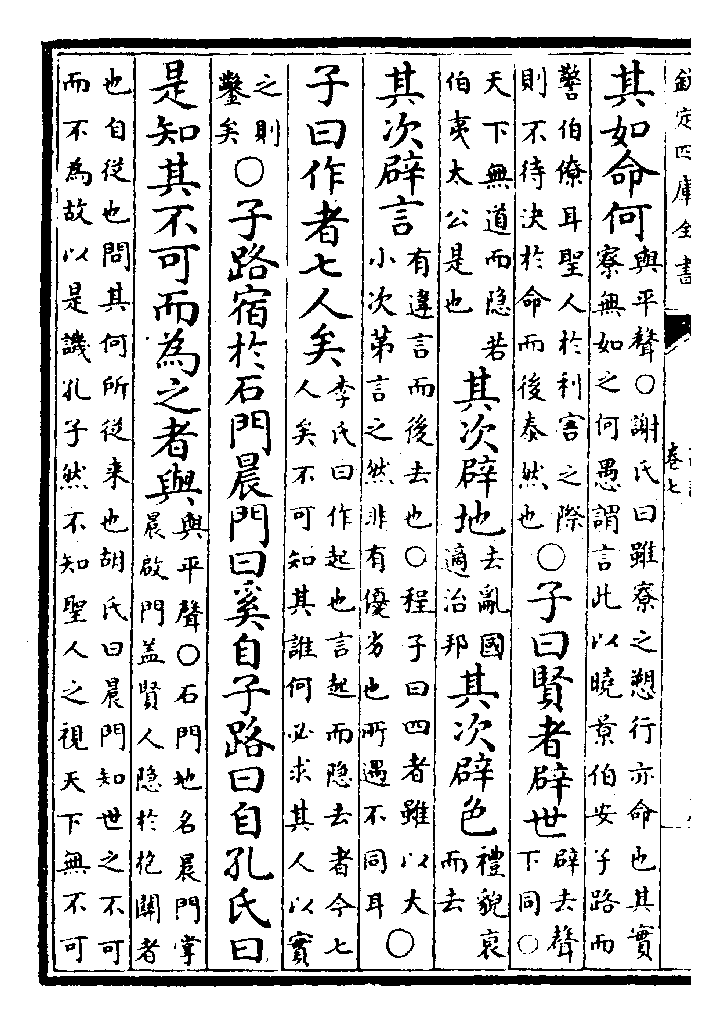 欽定四庫全書
卷七
其如命何與平聲○謝氏曰雖寮之愬行亦命也其實
寮無如之何愚謂言此以曉景伯安子路而
警伯僚耳聖人於利害之際
則不待決於命而後泰然也○子曰賢者辟世辟去聲
下同○
天下無道而隱若
伯夷太公是也其次辟地去亂國
適治邦其次辟色禮貌衰
而去
其次辟言有違言而後去也○程子曰四者雖以大
小次第言之然非有優劣也所遇不同耳○
子曰作者七人矣李氏曰作起也言起而隱去者今七
人矣不可知其誰何必求其人以實
之則
鑿矣○子路宿於石門晨門曰奚自子路曰自孔氏曰
是知其不可而為之者與與平聲○石門地名晨門掌
晨啟門盖賢人隱於抱關者
也自從也問其何所從来也胡氏曰晨門知世之不可
而不為故以是譏孔子然不知聖人之視天下無不可